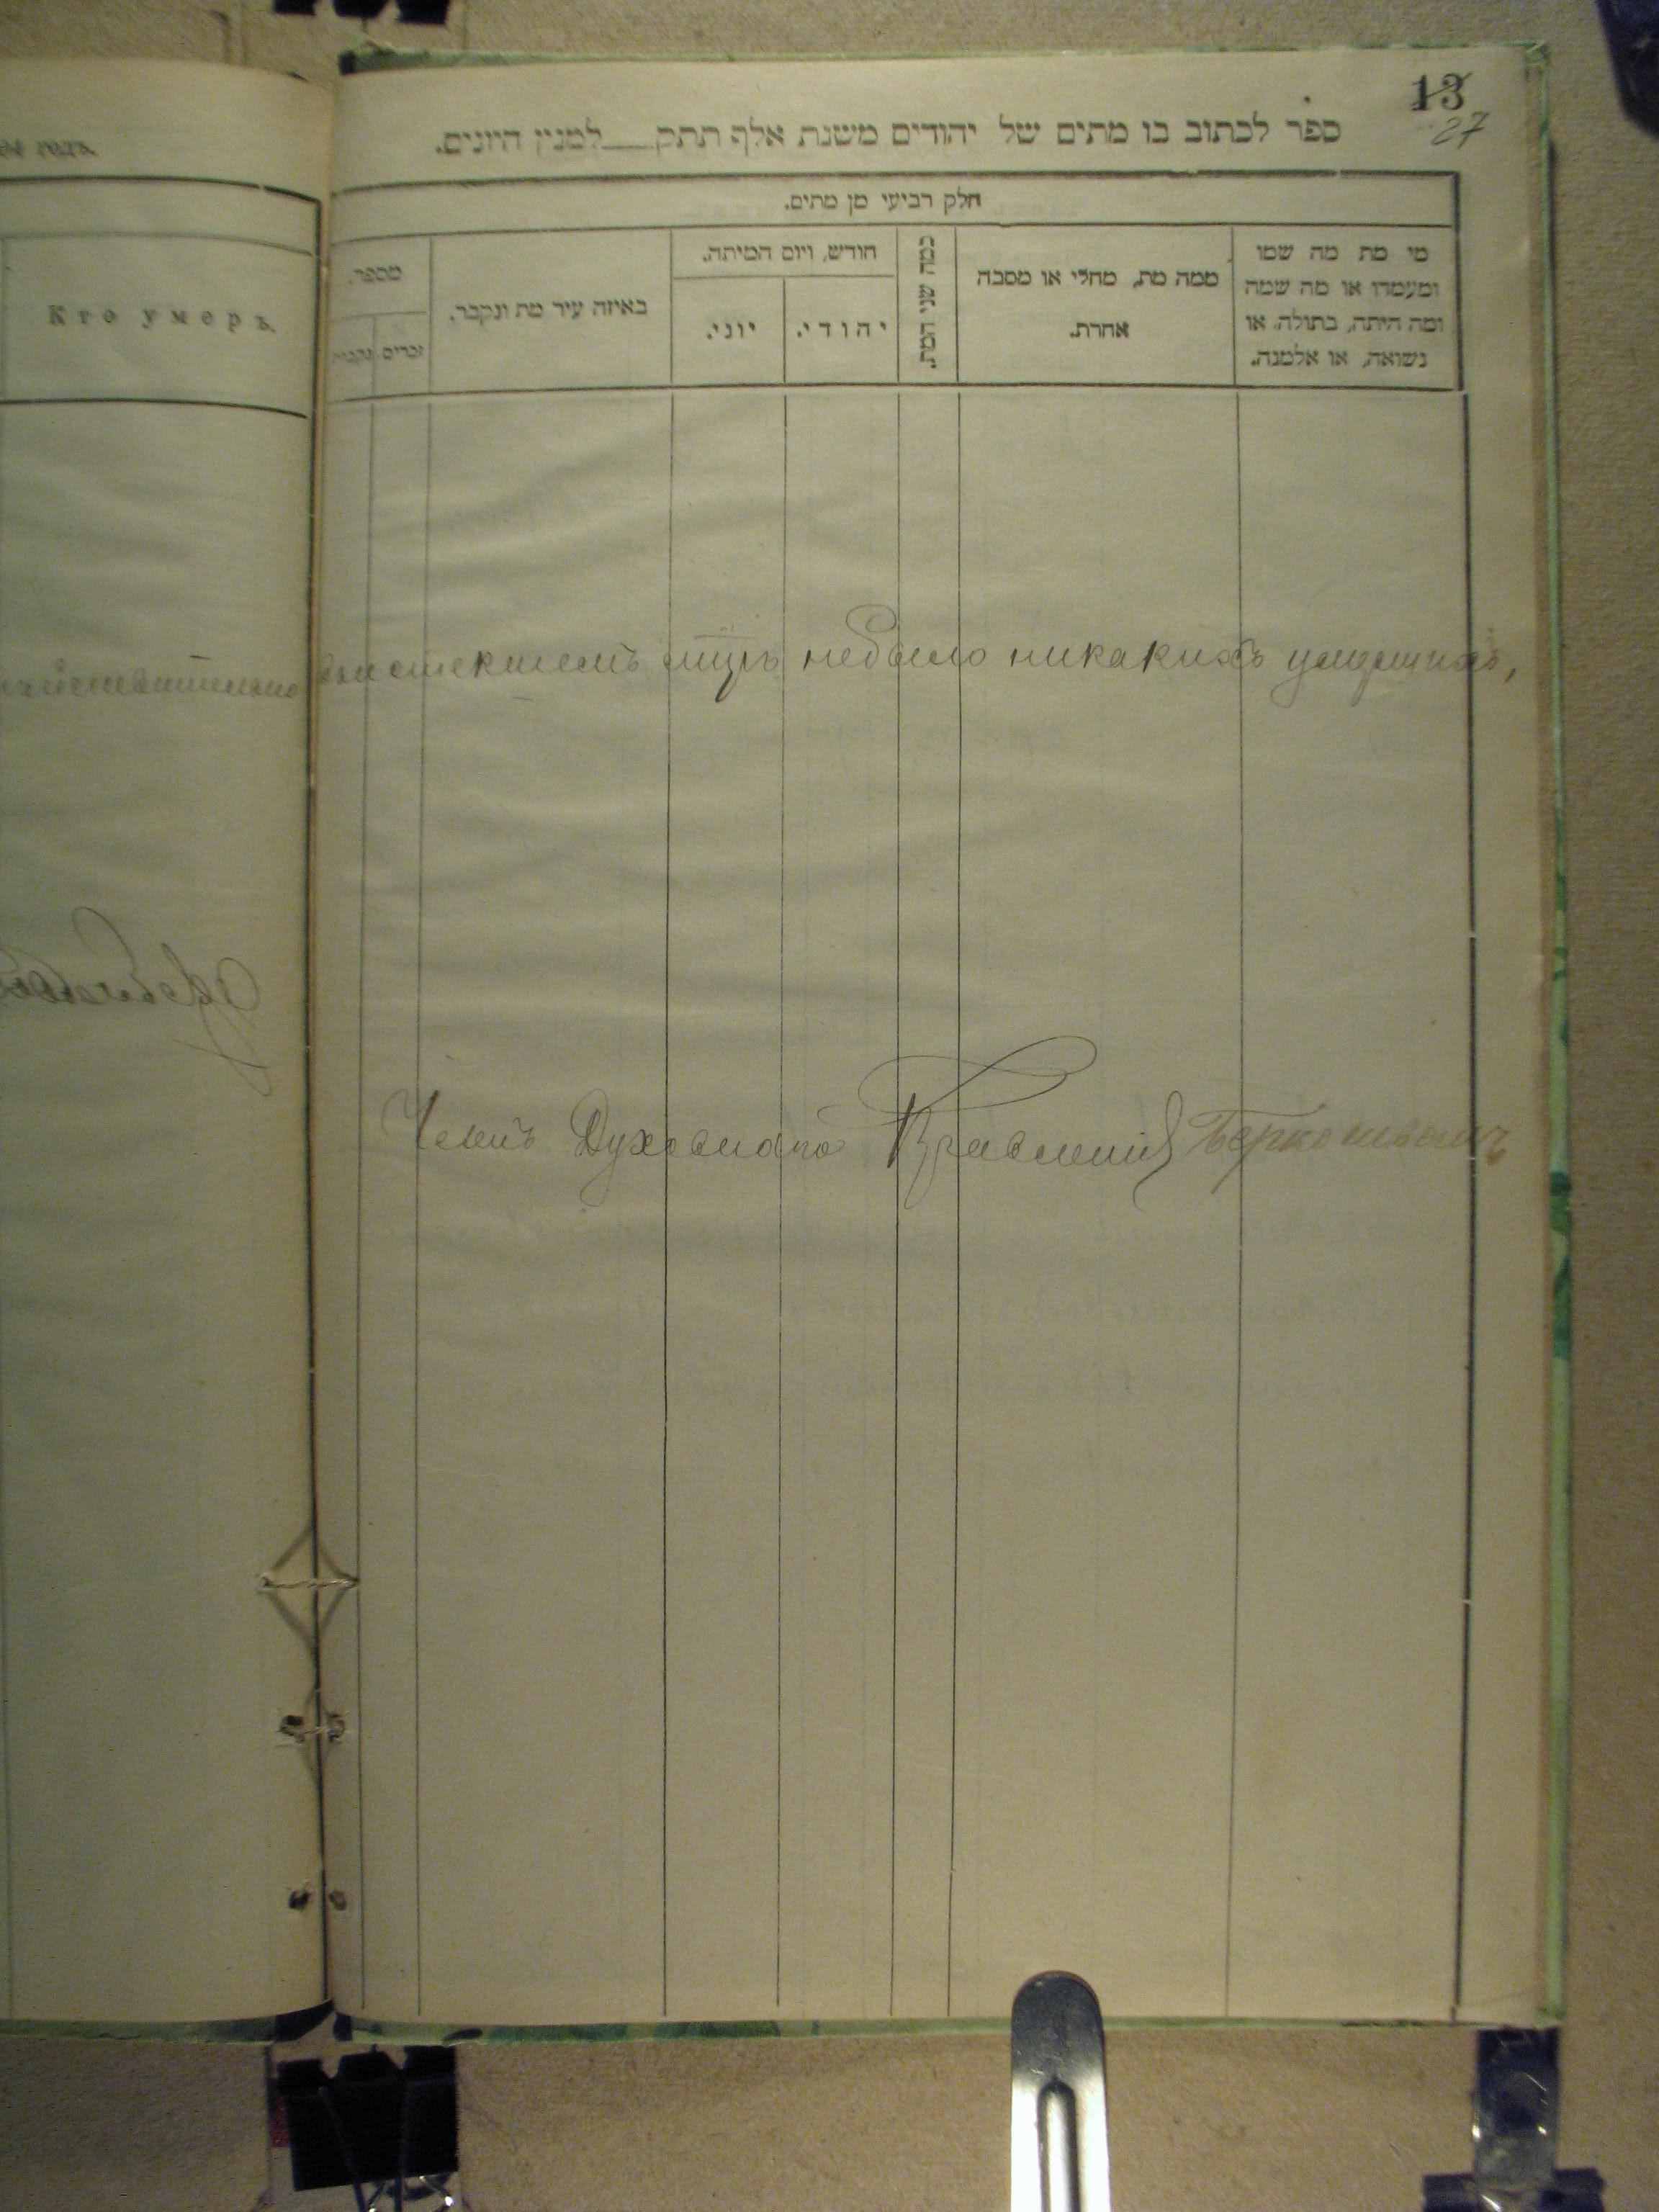 13
27
ספר לכתוב בו מתים של יהודים משנת אלף תתק___למנין היונים.
חלק רביעי מן מתים.
מי מת מה שמו ומעמדו או מה שמה ומה היתה, בתולה, או נשואה, או אלמנה.
ממה מת, מחלי או מסבה אחרת.
כמה שני המת.
חודש, ויום המיתה.
יהודי.
יוני.
באיזה עיר מת ונקבר.
מספר.
זכרים.
נקבות
годъ.
Кто умеръ.
действительно въ истекшемъ мцѣ небыло никакихъ умершихъ,
Членъ Духовнаго Правленія